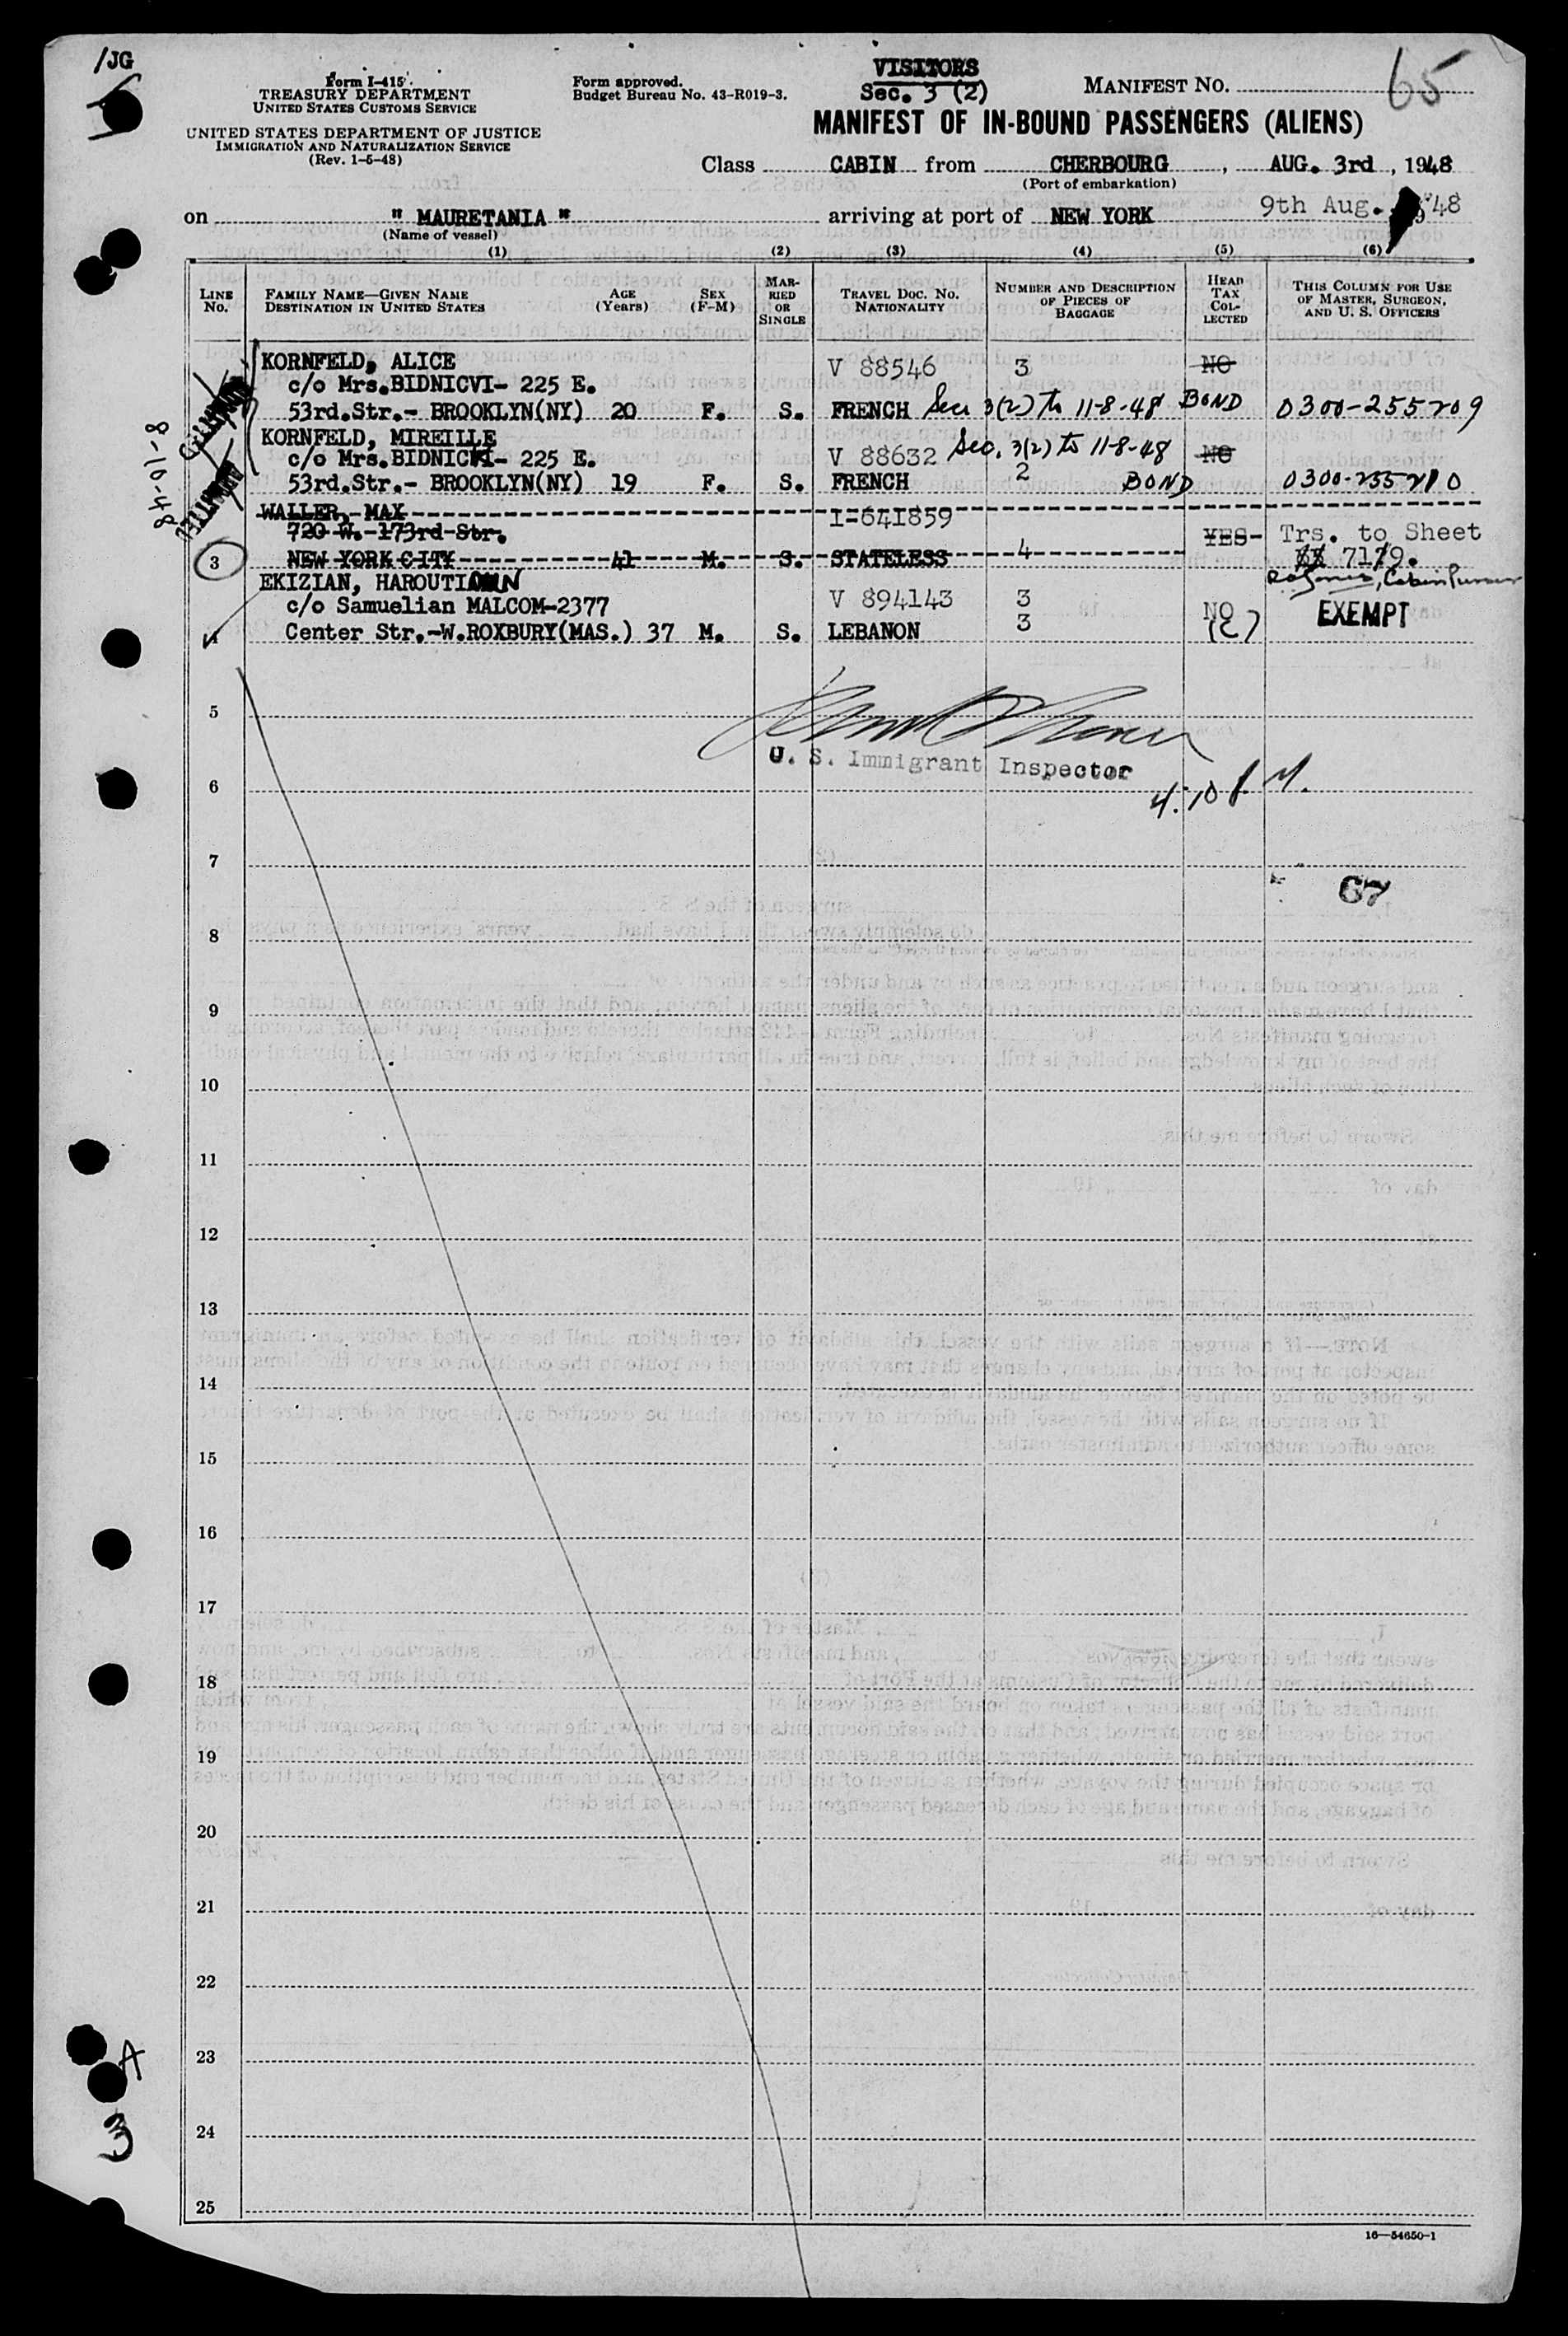 /JG
Form I-415
TREASURY DEPARTMENT
UNITED STATES CUSTOMS SERVICE
UNITED STATES DEPARTMENT OF JUSTICE
IMMIGRATION AND NATURALIZATION SERVICE
(Rev. 1-5-48)
Form approved.
Budget Bureau No. 43-R019-3.
VISITORS
Sec. 3 (2)
MANIFEST NO. 65
MANIFEST OF IN-BOUND PASSENGERS (ALIENS)
Class CABIN from CHERBOURG, AUG. 3rd, 1948
(Port of embarkation)
on " MAURETANIA " arriving at port of NEW YORK 9th Aug. '48
(Name of vessel)
(1) (2) (3) (4) (5) (6)
LINE NO. FAMILY NAME—GIVEN NAME DESTINATION IN UNITED STATES AGE (Years) SEX (F-M) MARRIED OR SINGLE TRAVEL DOC. NO. NATIONALITY NUMBER AND DESCRIPTION OF PIECES OF BAGGAGE HEAD TAX COLLECTED THIS COLUMN FOR USE OF MASTER, SURGEON, AND U. S. OFFICERS
KORNFELD, ALICE V 88546 3 NO
c/o Mrs.BIDNICVI- 225 E.
53rd.Str.- BROOKLYN(NY) 20 F. S. FRENCH Sec 3(2) to 11-8-48 BOND 0300-255209
ADMITTED
KORNFELD, MIREILLE
c/o Mrs.BIDNICKI- 225 E. V 88632 Sec. 3(2) to 11-8-48 NO
53rd.Str.- BROOKLYN(NY) 19 F. S. FRENCH 2 BOND 0300-255210
ADMITTED
8-10-48
WALLER, MAX I-641859
720 W. 173rd Str. YES Trs. to Sheet
3 NEW YORK CITY 41 M. S. STATELESS 4 7179.
Cabin Purser
EKIZIAN, HAROUTIOUN
c/o Samuelian MALCOM-2377 V 894143 3 NO EXEMPT
4 Center Str.-W.ROXBURY(MAS.) 37 M. S. LEBANON 3 (C)
5
U. S. Immigrant Inspector
6 4:10 P. M.
7
67
8
9
10
11
12
13
14
15
16
17
18
19
20
21
22
23
A
3
24
25
16—54650-1